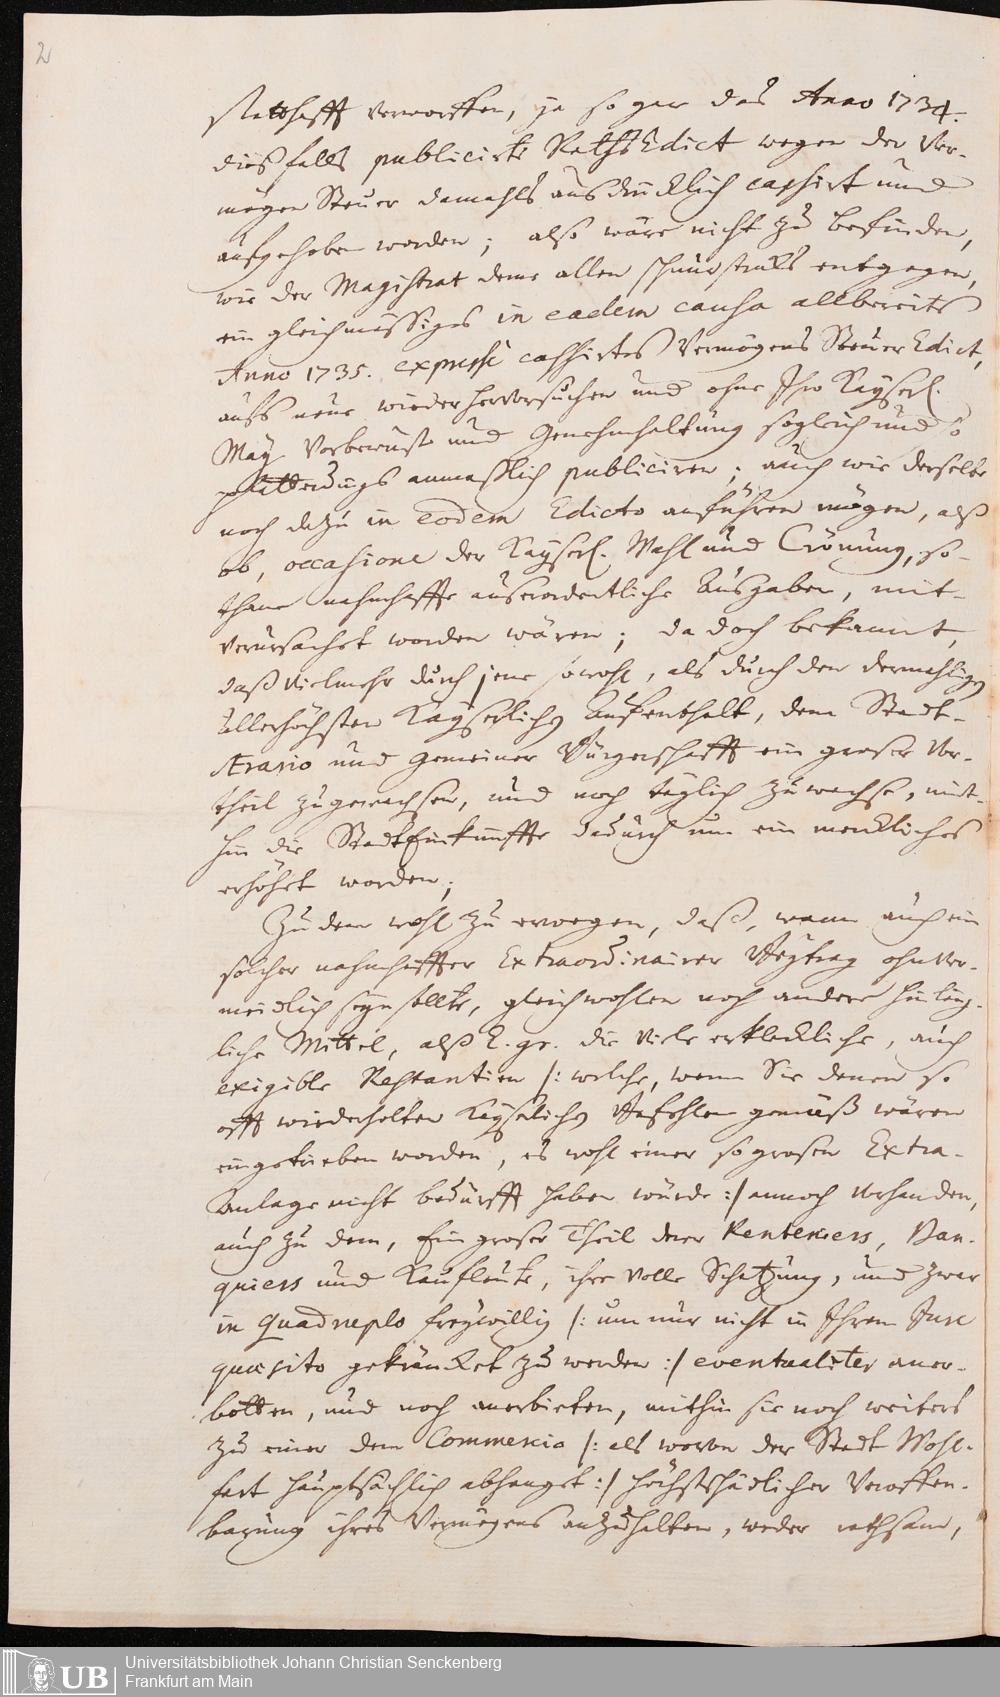 2
statthafft verworffen, ja so gar das Anno 1734.
diesfalls publicirte Raths Edict wegen der Ver-
mögen Steuer damahls ausdrücklich cassirt und
aufgehoben worden; also wäre nicht zu befinden,
wie der Magistrat deme allen schnurstracks entgegen,
ein gleichmässiges in eadem causa allbereits
Anno 1735. expressè cassirtes Vermögens Steuer Edict,
aufs neue wieder hervorsuchen und ohne Ihro Kayserl.
May. Vorbewust und Genehmhaltung sogleich und so
platterdings anmasslich publiciren; auch wie derselbe
noch dazu in eodem Edicto anführen mögen, alß
ob, occasione der Kayserl. Wahl und Crönung, so-
thane nahmhaffte ausserordentliche Ausgaben, mit-
verursachet worden wären; da doch bekannt,
daß vielmehr durch jene sowohl, als durch den dermahligen
Allerhöchsten Kayserlichen Aufenthalt, dem Stadt-
Ærario und gemeiner Bürgerschafft ein groser Vor-
theil zugewachsen, und noch täglich zuwachse, mit-
hin die Stadt Einkünffte dadurch um ein merckliches
erhöhet worden;
Zudem wohl zu erwegen, daß, wann auch ein
solcher nahmhaffter Extraordinairer Beytrag ohnver-
meidlich seyn sollte, gleichwohlen noch andere hinläng-
liche Mittel, alß E. gr. die viele erkleckliche, auch
exigible Restantien /: welche, wenn Sie denen so
offt wiederholten Kayserlichen Befehlen gemäß wären
eingetrieben worden, es wohl einer so grosen Extra-
Anlage nicht bedürfft haben würde :/ annoch vorhanden,
auch zu dem, Ein groser Theil derer Renteniers, Ban-
quiers und Kaufleute, ihre volle Schatzung, und zwar
in quadruplo freywillig /: um nur nicht in Ihrem Jure
quæsito gekräncket zu werden :/ eventualiter aner-
botten, und noch anerbieten, mithin sie noch weiters
zu einer dem Commercio /: als wovon der Stadt Wohl-
fart hauptsächlich abhanget :/ höchstschädlicher Veroffen-
barung ihres Vermögens anzuhalten, weder rathsam,
UB Universitätsbibliothek Johann Christian Senckenberg
Frankfurt am Main